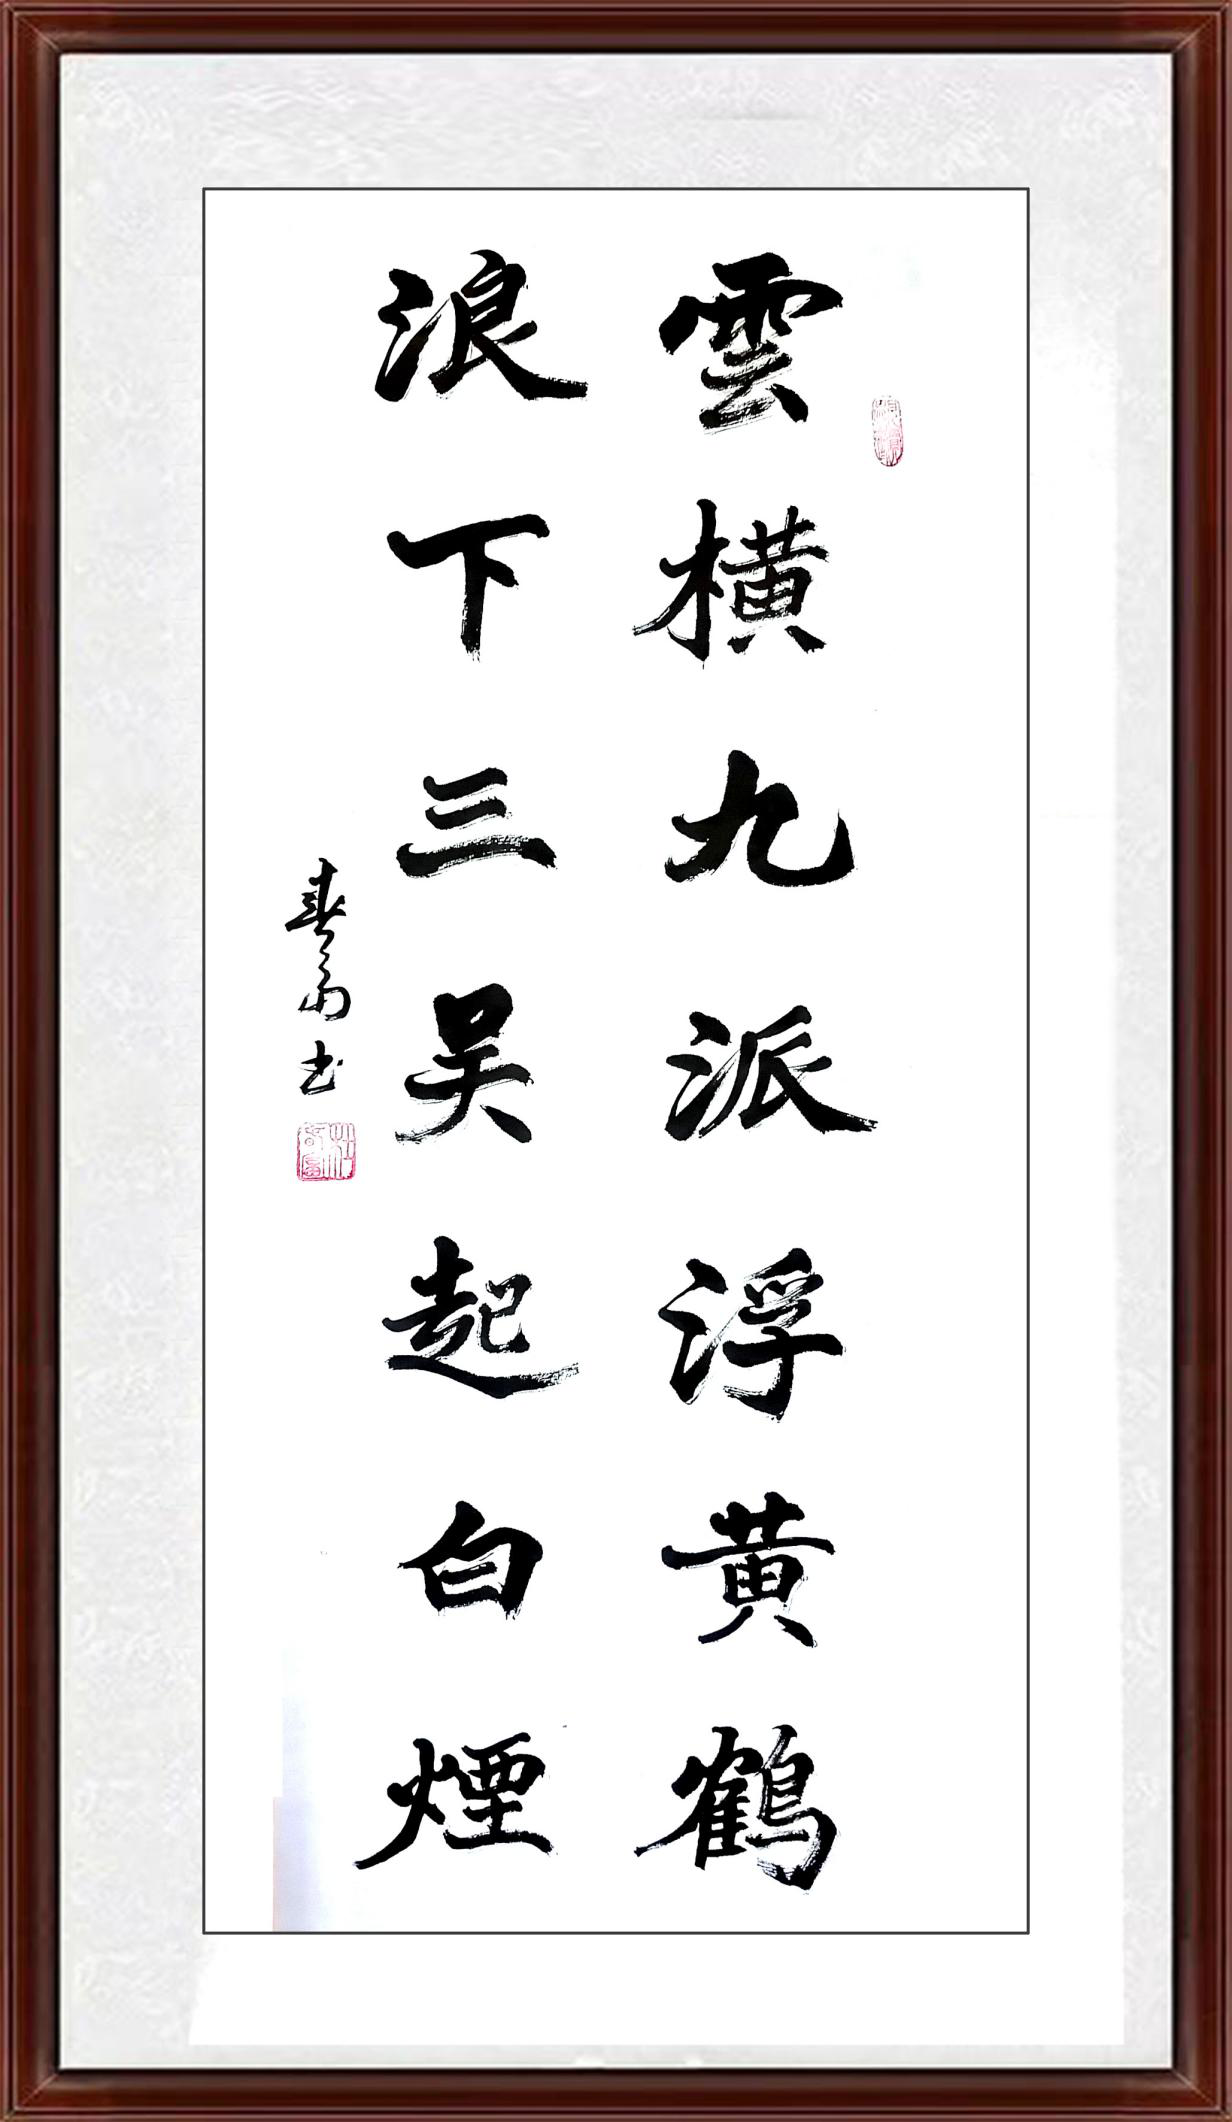 雲橫九派浮黄鶴
浪下三吴起白煙
书